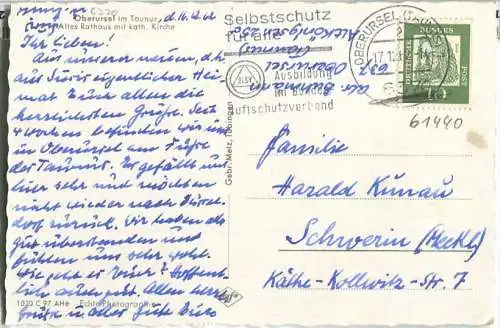 Oberursel im Taunus, d. 16.12.62
Altes Rathaus mit kath. Kirche
Ihr lieben!
Aus unserer neuen, d.h.
aus Juris eigentlicher Hei-
mat Euch allen die
herzlichsten Grüße. Seit
4 Wochen befinden wir uns
in Oberursel am Fuße
des Taunus. Es gefällt uns
hier sehr und möchten
nicht wieder nach Düssel-
dorf zurück. Wir haben alles
gut überstanden und
fühlen uns sehr wohl.
Wie geht es Euch? Hoffent-
lich auch gut. Allen herzl.
Grüße u. alles Gute
1020 C 97 AHe Echte Photographie
Gebr. Metz, Tübingen
Selbstschutz
Ausbildung
im Bundes-
luftschutzverband
BLSV
OBERURSEL (TAUNUS)
17.12.
DEUTSCHE
BUNDESPOST
10
61440
Familie
Harald Kunau
Schwerin (Meckl.)
Käthe-Kollwitz-Str. 7